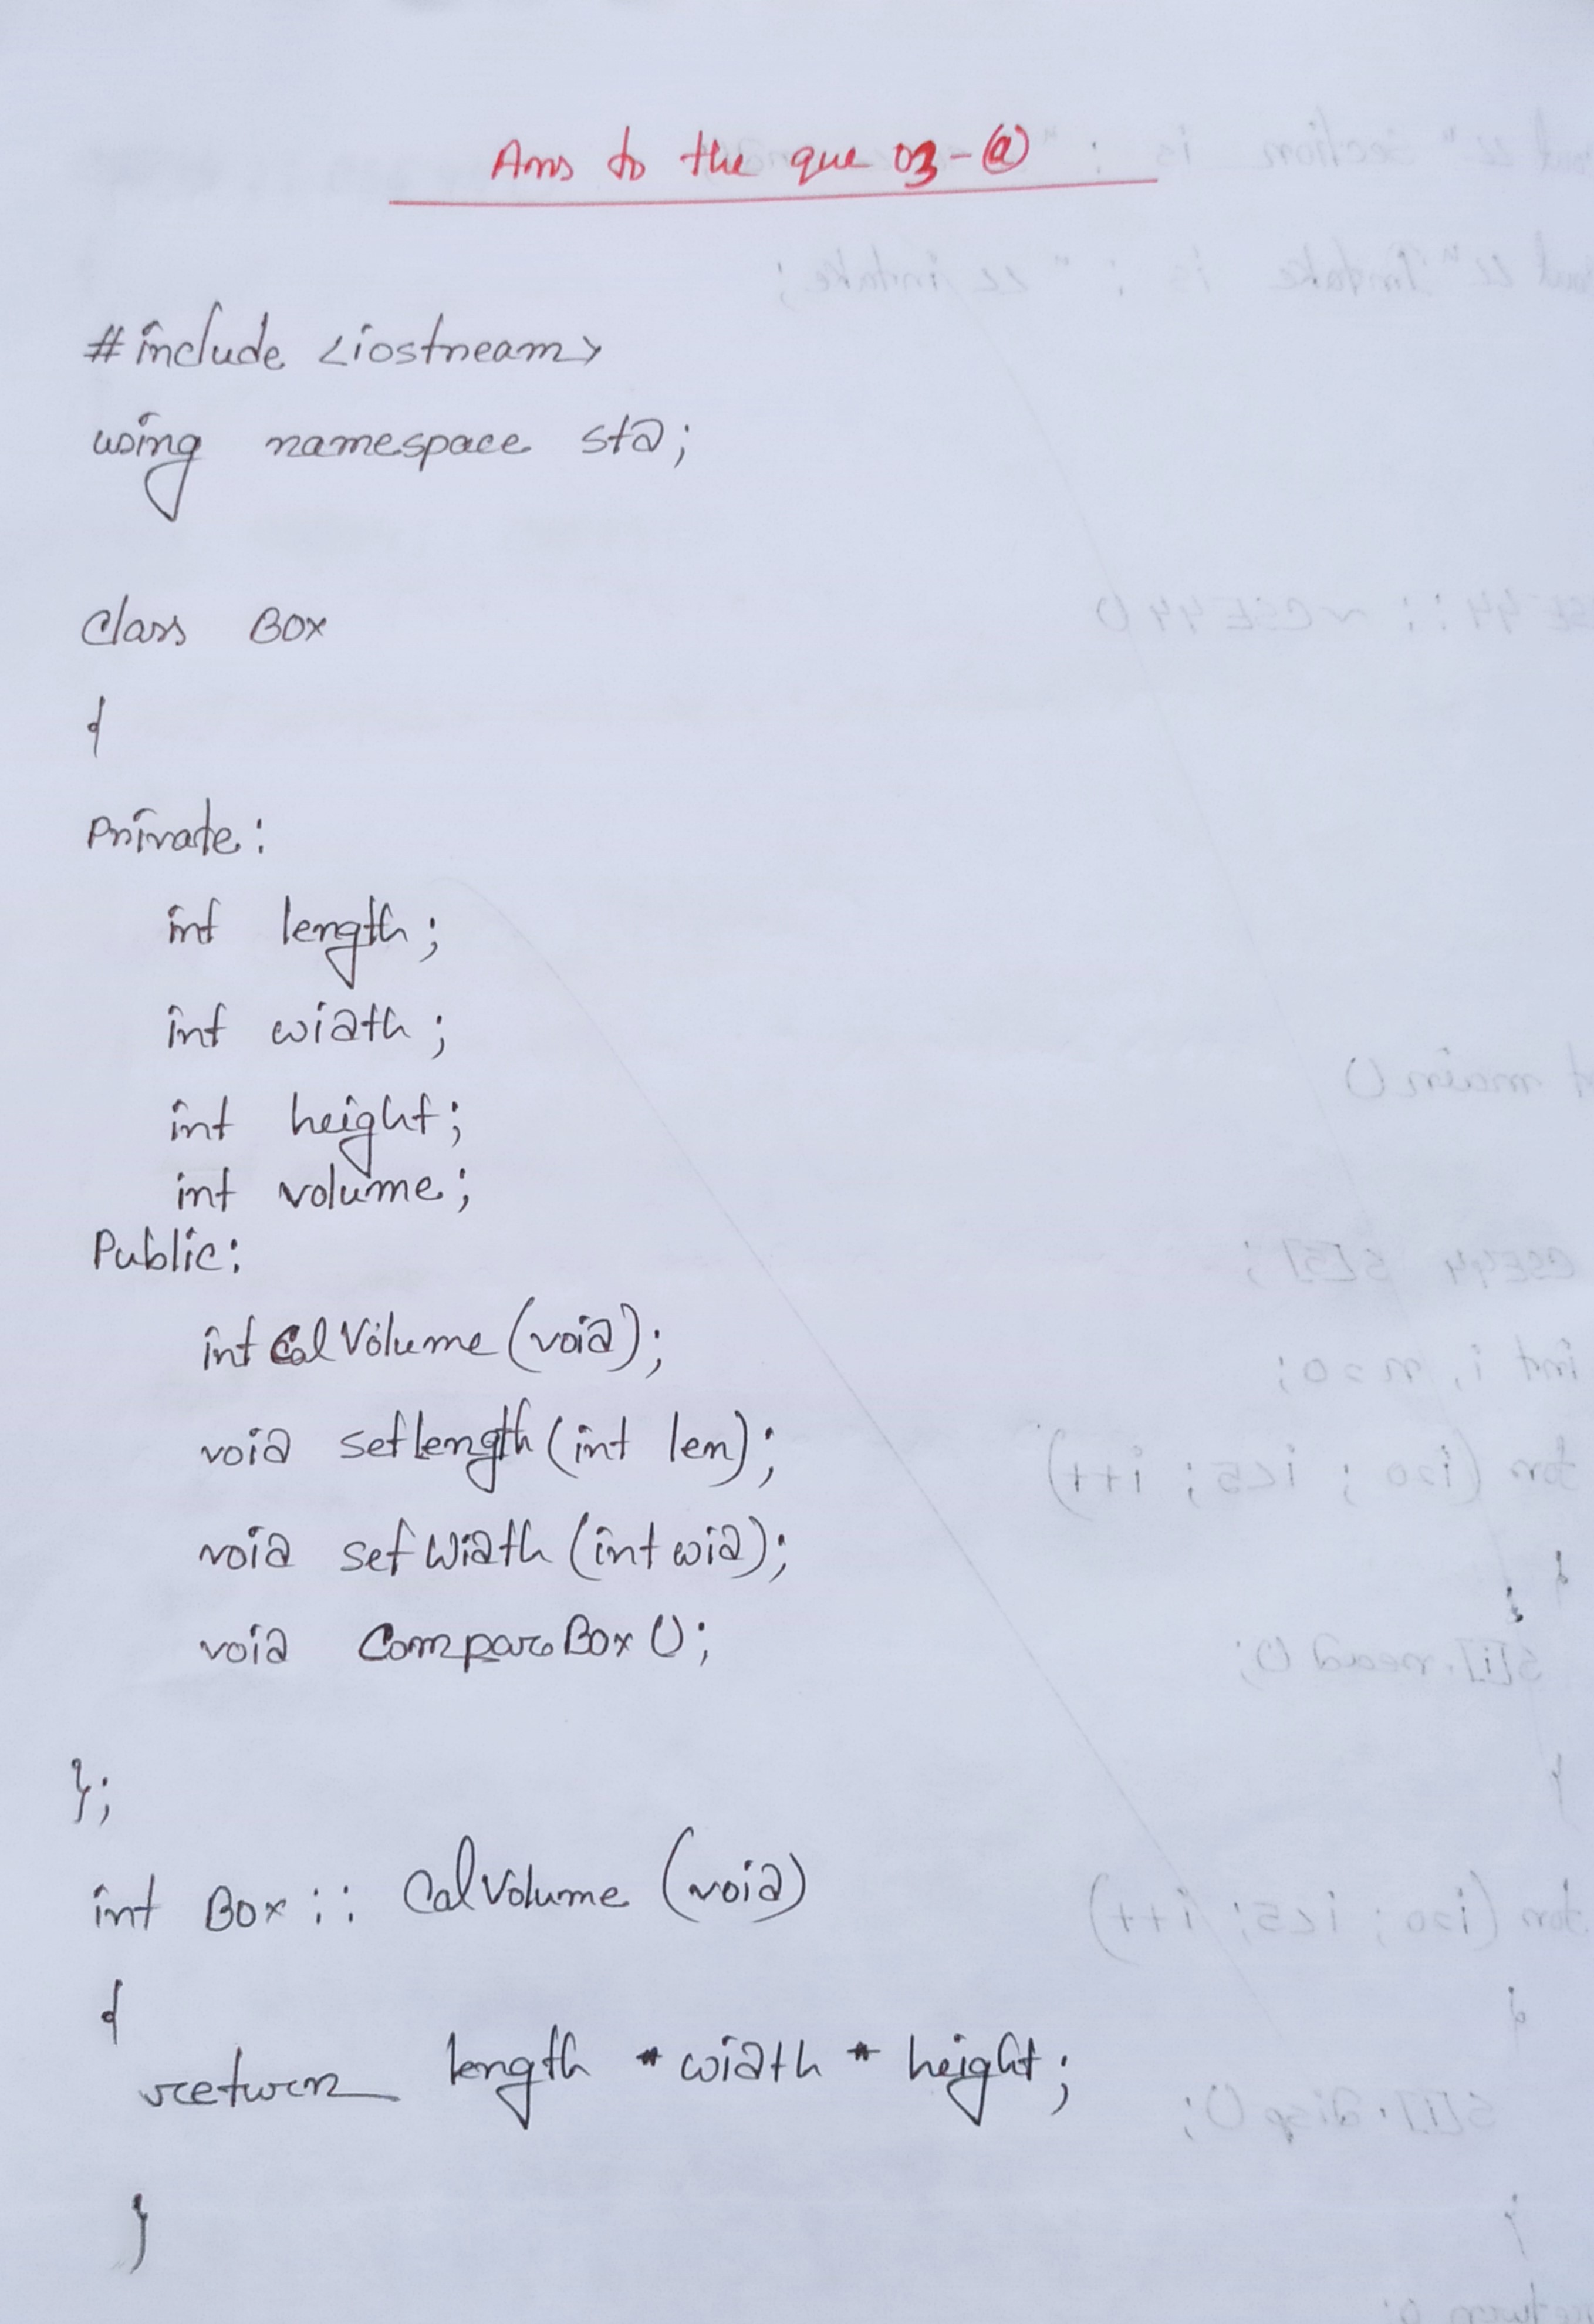 Ans to the que 03-(a)
#include <iostream>
using namespace std;
class Box
{
Private:
int length;
int width;
int height;
int volume;
Public:
int CalVolume (void);
void setlength (int len);
void set Width (int wid);
void CompareBox ();
};
int Box :: CalVolume (void)
{
return length * width * height;
}